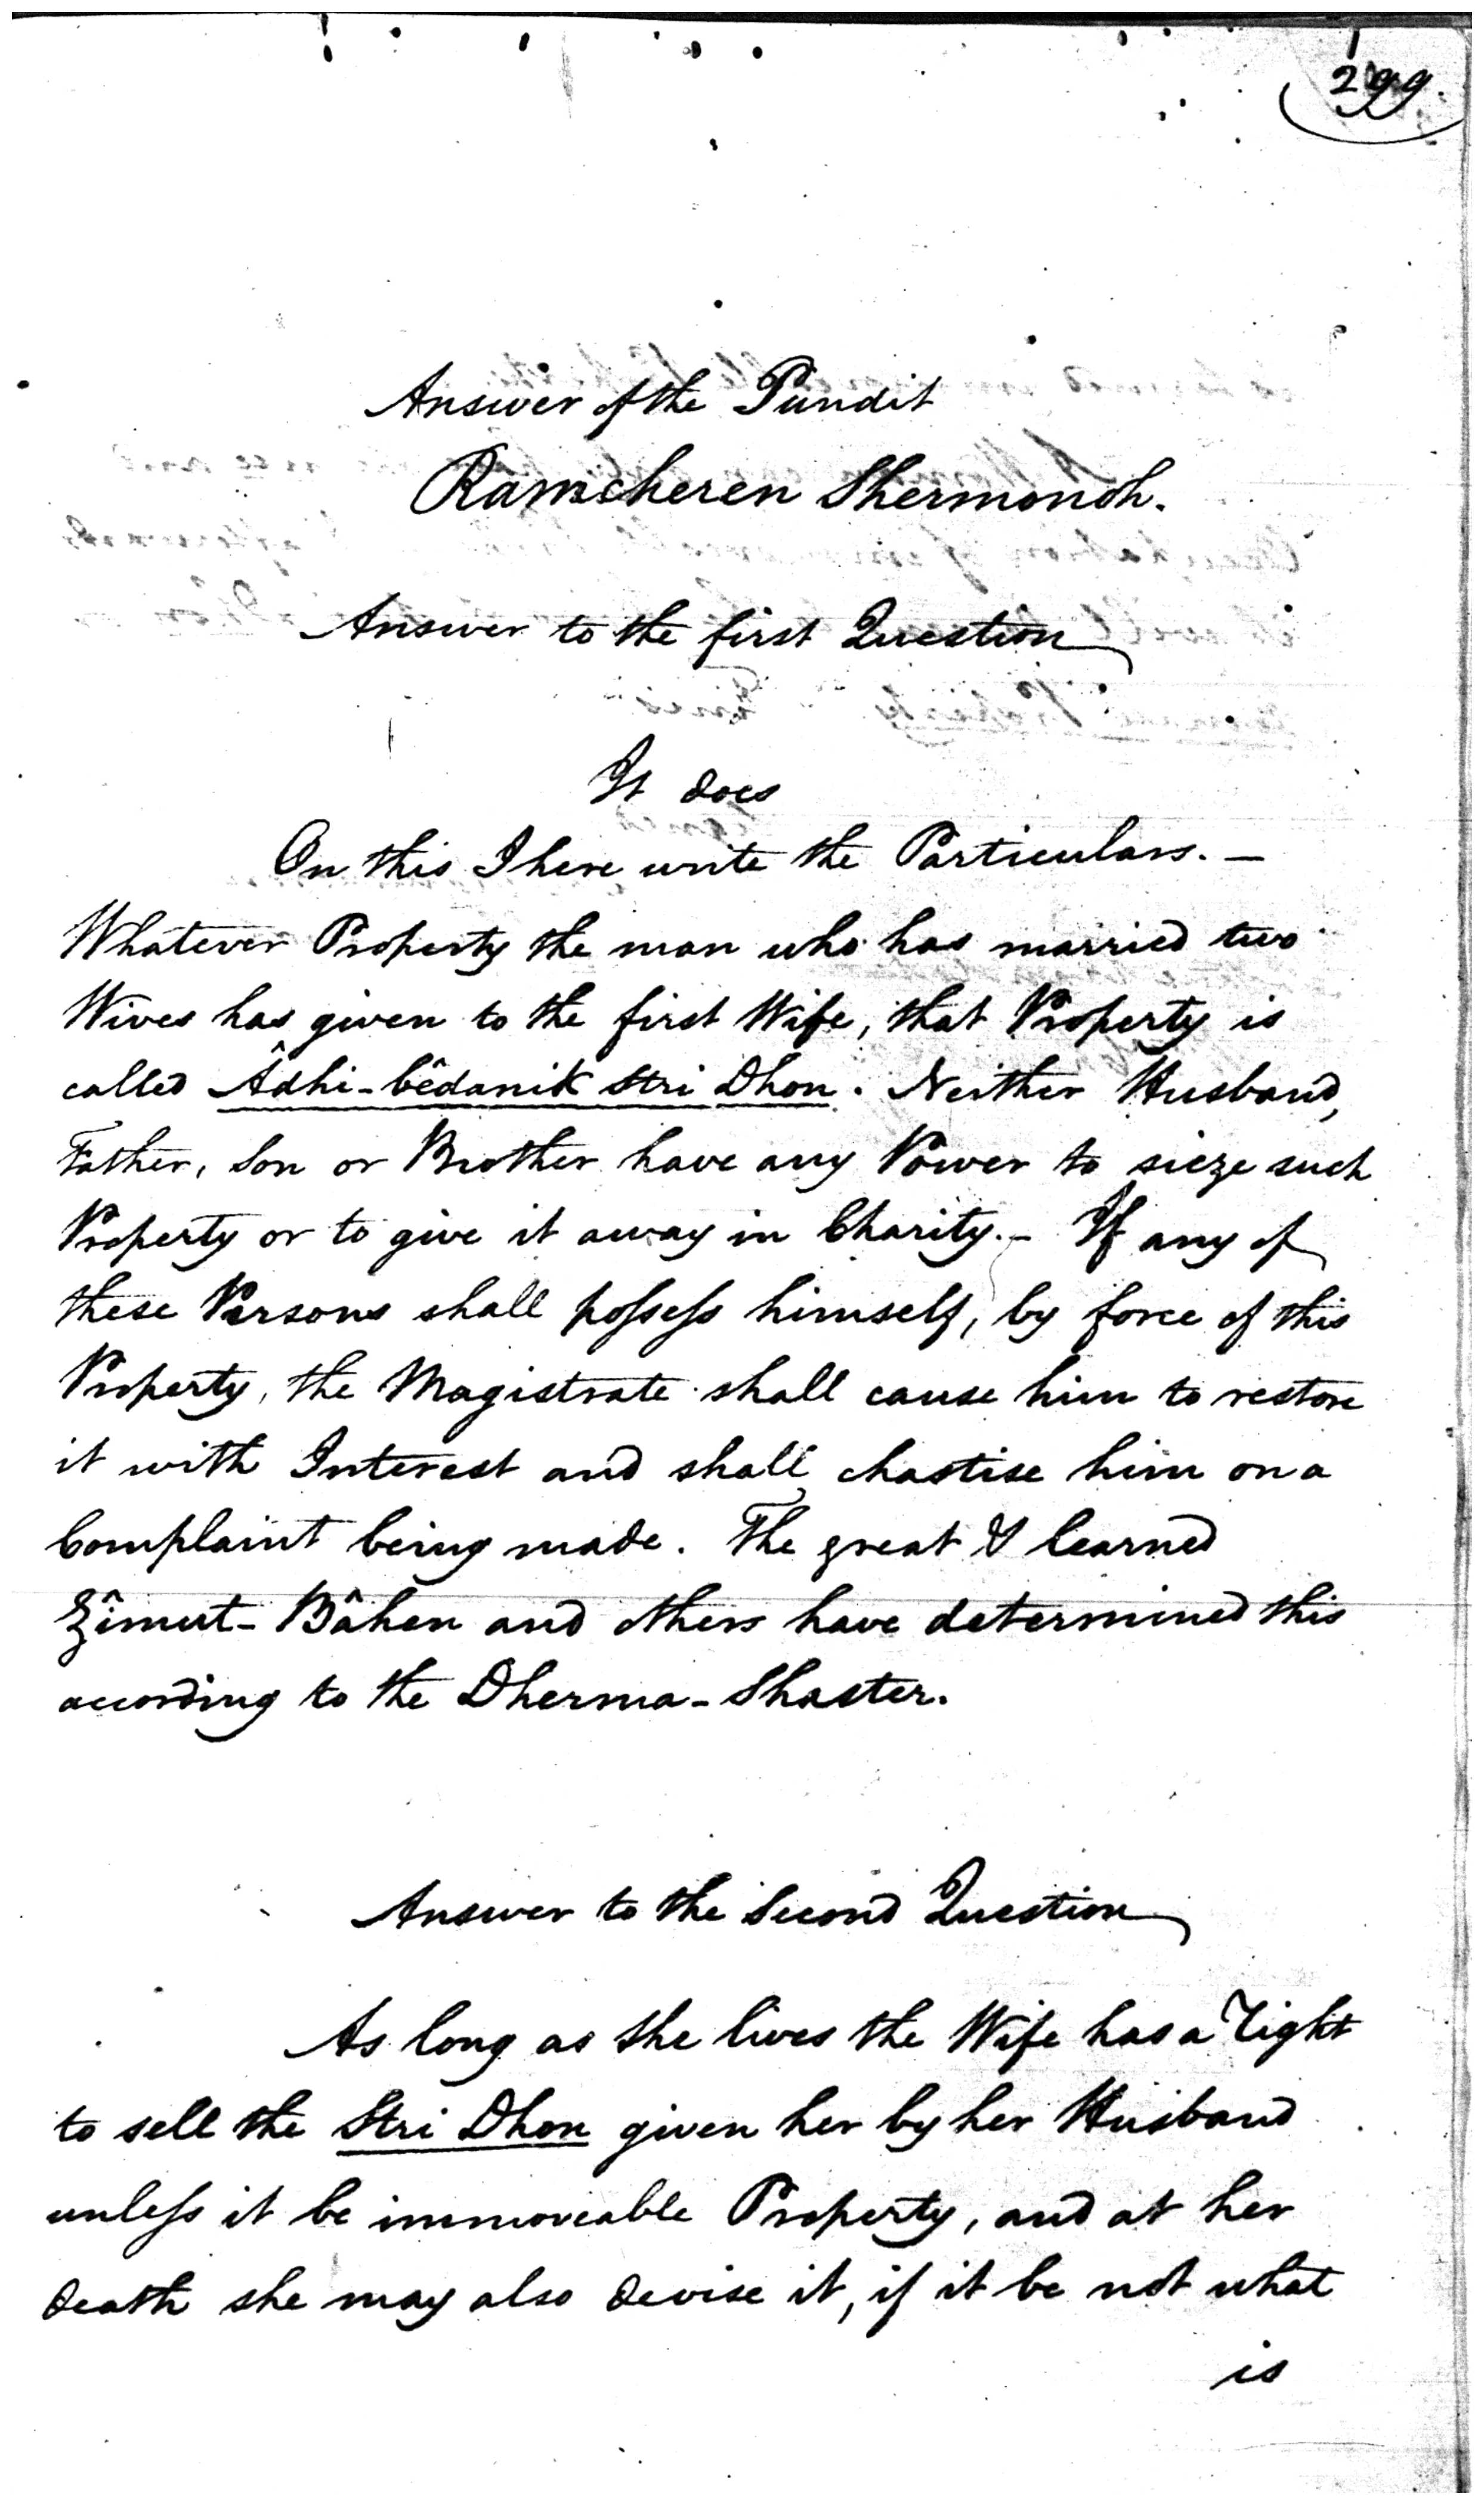 299.
Answer of the Pundit
Ramcheren Shermonoh.
Answer to the first Question
It does
On this I here write the Particulars. —
Whatever Property the man who has married two
Wives has given to the first Wife, that Property is
called Âdhi-bêdanik Stri Dhon. Neither Husband,
Father, Son or Brother have any Power to sieze such
Property or to give it away in Charity. – If any of
these Persons shall possess himself, by force of this
Property, the Magistrate shall cause him to restore
it with Interest and shall chastise him on a
Complaint being made. The great & learned
Zîmut-Bâhen and others have determined this
according to the Dherma-Shaster.
Answer to the Second Question
As long as she lives the Wife has a right
to sell the Stri Dhon given her by her Husband
unless it be immoveable Property, and at her
death she may also devise it, if it be not what
is